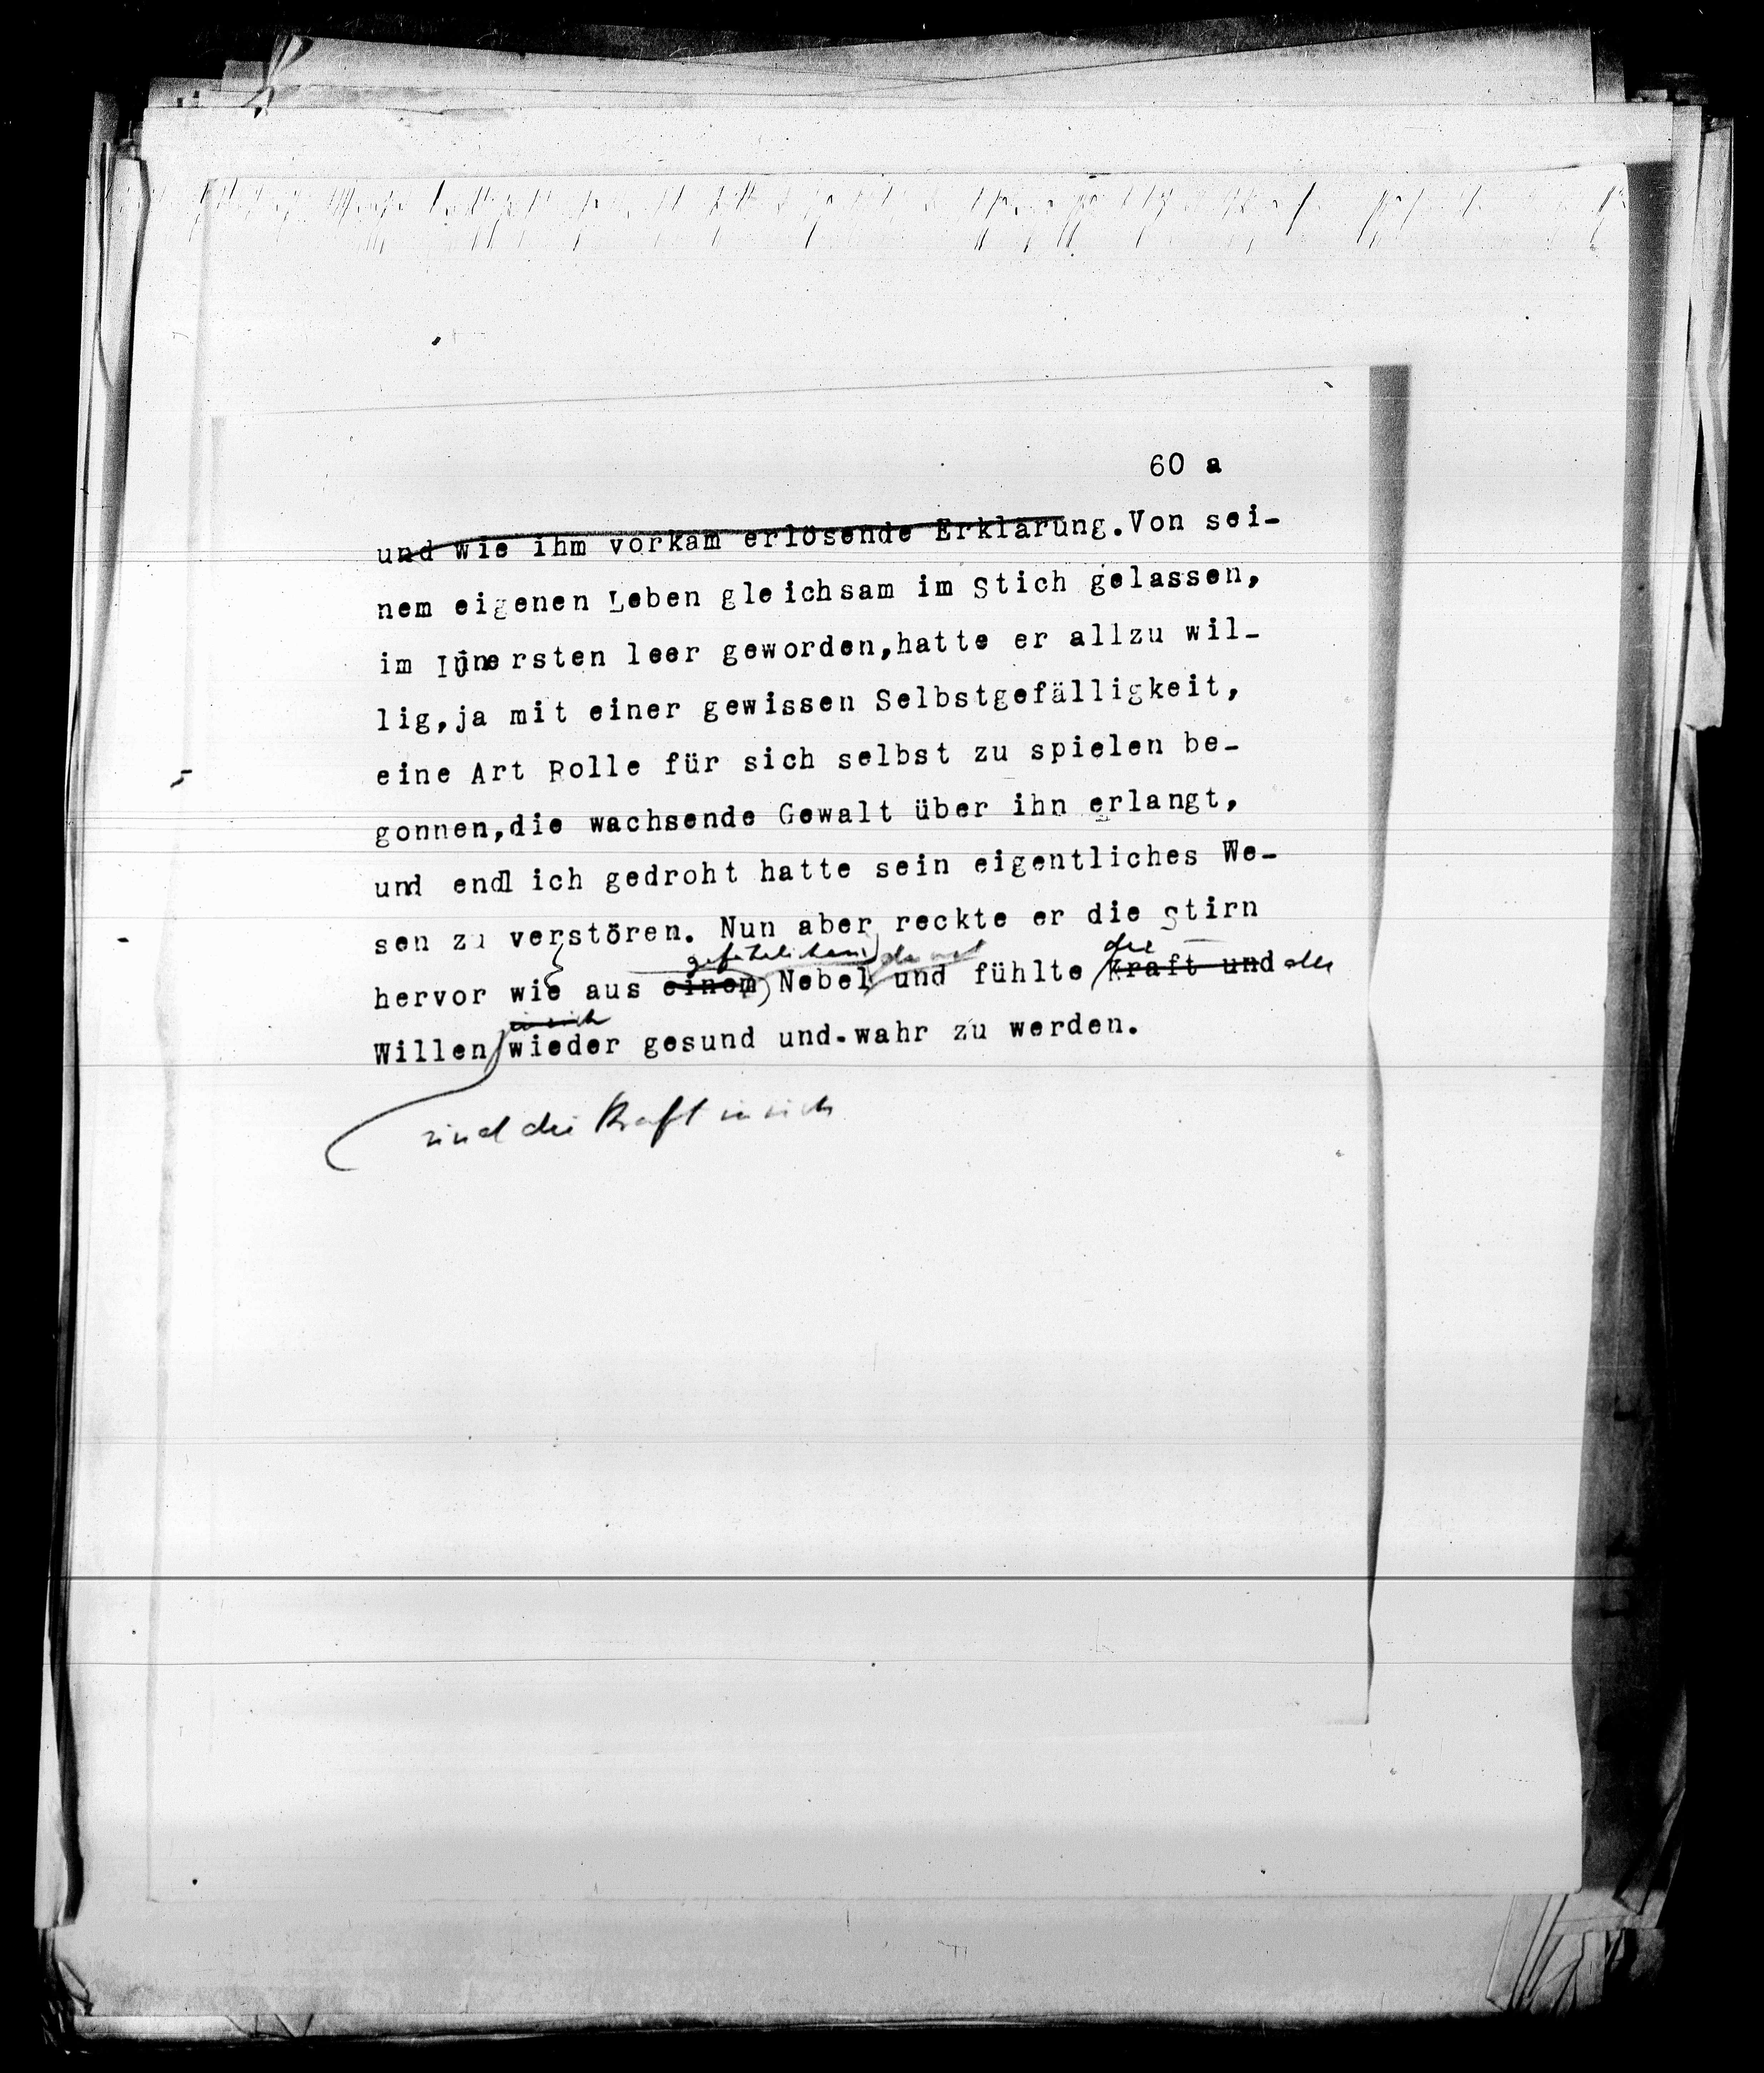 60 a
und wie ihm vorkam erlösende Erklärung.Von sei-
nem eigenen Leben gleichsam im Stich gelassen,
im Innersten leer geworden,hatte er allzu wil-
lig,ja mit einer gewissen Selbstgefälligkeit,
eine Art Rolle für sich selbst zu spielen be-
gonnen,die wachsende Gewalt über ihn erlangt,
und endlich gedroht hatte sein eigentliches We-
sen zu verstören. Nun aber reckte er die Stirn
gefährlichen die
hervor wie aus einem Nebel und fühlte Kraft und den
in sich
Willen wieder gesund und wahr zu werden.
und die Kraft in sich